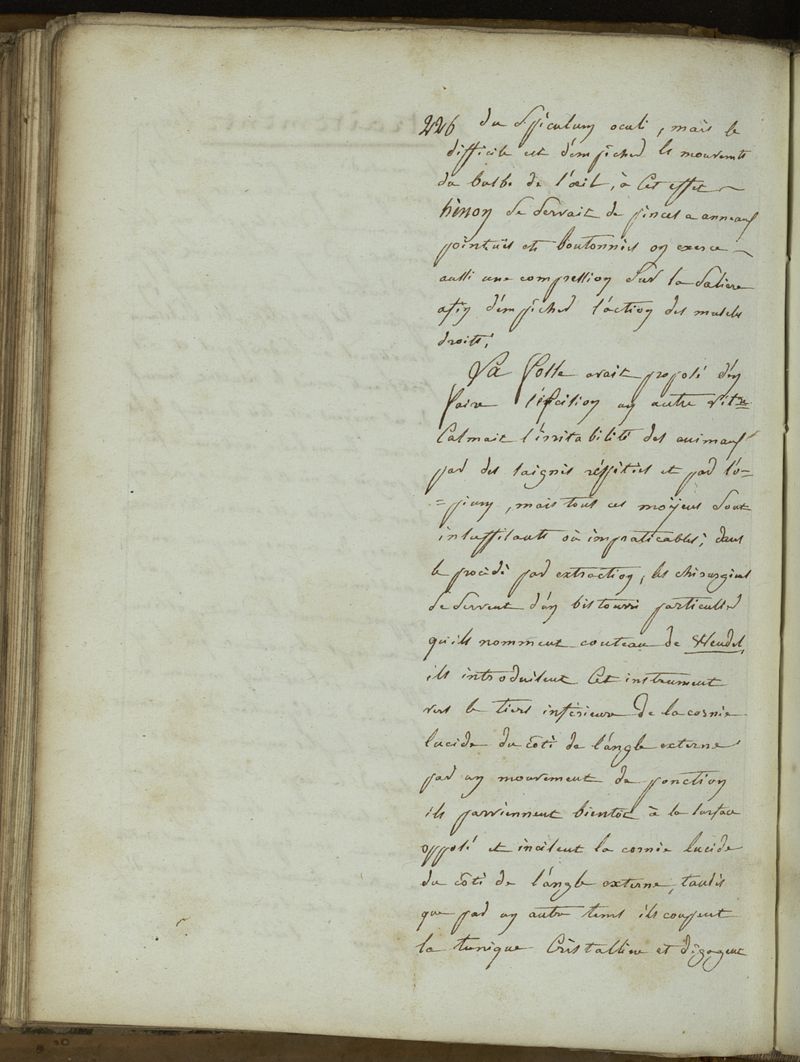 226 du Speculum oculi, mais le
difficile est d'empecher les mouvemts
du bulbe de l'œil, à Cet effet
hénon se Servait de pinces a anneaux
pointues et boutonnées on exerce
aussi une compression Sur la Saliere
afin d'empecher l'action des muscles
droits;
La fosse avait proposé d'en
faire l'éxcision un autre vitre
Calmait l'irritabilité des animaux
par des saignés répetées et par l'o=
=pium, mais tous ces moÿens Sont
insuffisants où impraticables; dans
le procédé par extraction, les chirurgiens
se servent d'un bistourri particulier
qu'ils nomment couteau de Wendel,
ils introduisent Cet instrument
vers le tiers inférieure de la cornée
lucide du côté de l'angle externe
par un mouvement de ponction
ils parviennent bientot à la surface
opposé et incisent la cornée lucide
du côté de l'angle externe, tandis
que par un autre tems ils coupent
la tunique Cristalline et dégagent